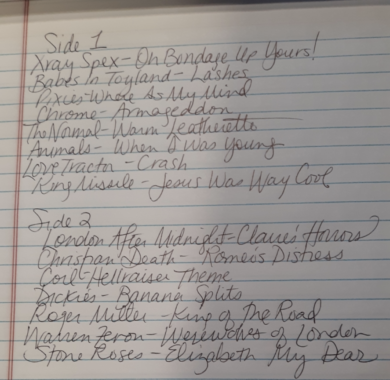 Side 1
Xray Spex - Oh Bondage Up Yours!
Babes In Toyland - Lashes
Pixies - Where Is My Mind
Chrome - Armageddon
The Normal - Warm Leatherette
Animals - When I Was Young
Love Tractor - Crash
King Missile - Jesus Was Way Cool
Side 2
London After Midnight - Claire's Horrors
Christian Death - Romeo's Distress
Coil - Hellraiser Theme
Dickies - Banana Splits
Roger Miller - King of the Road
Warren Zevon - Werewolves of London
Stone Roses - Elizabeth My Dear